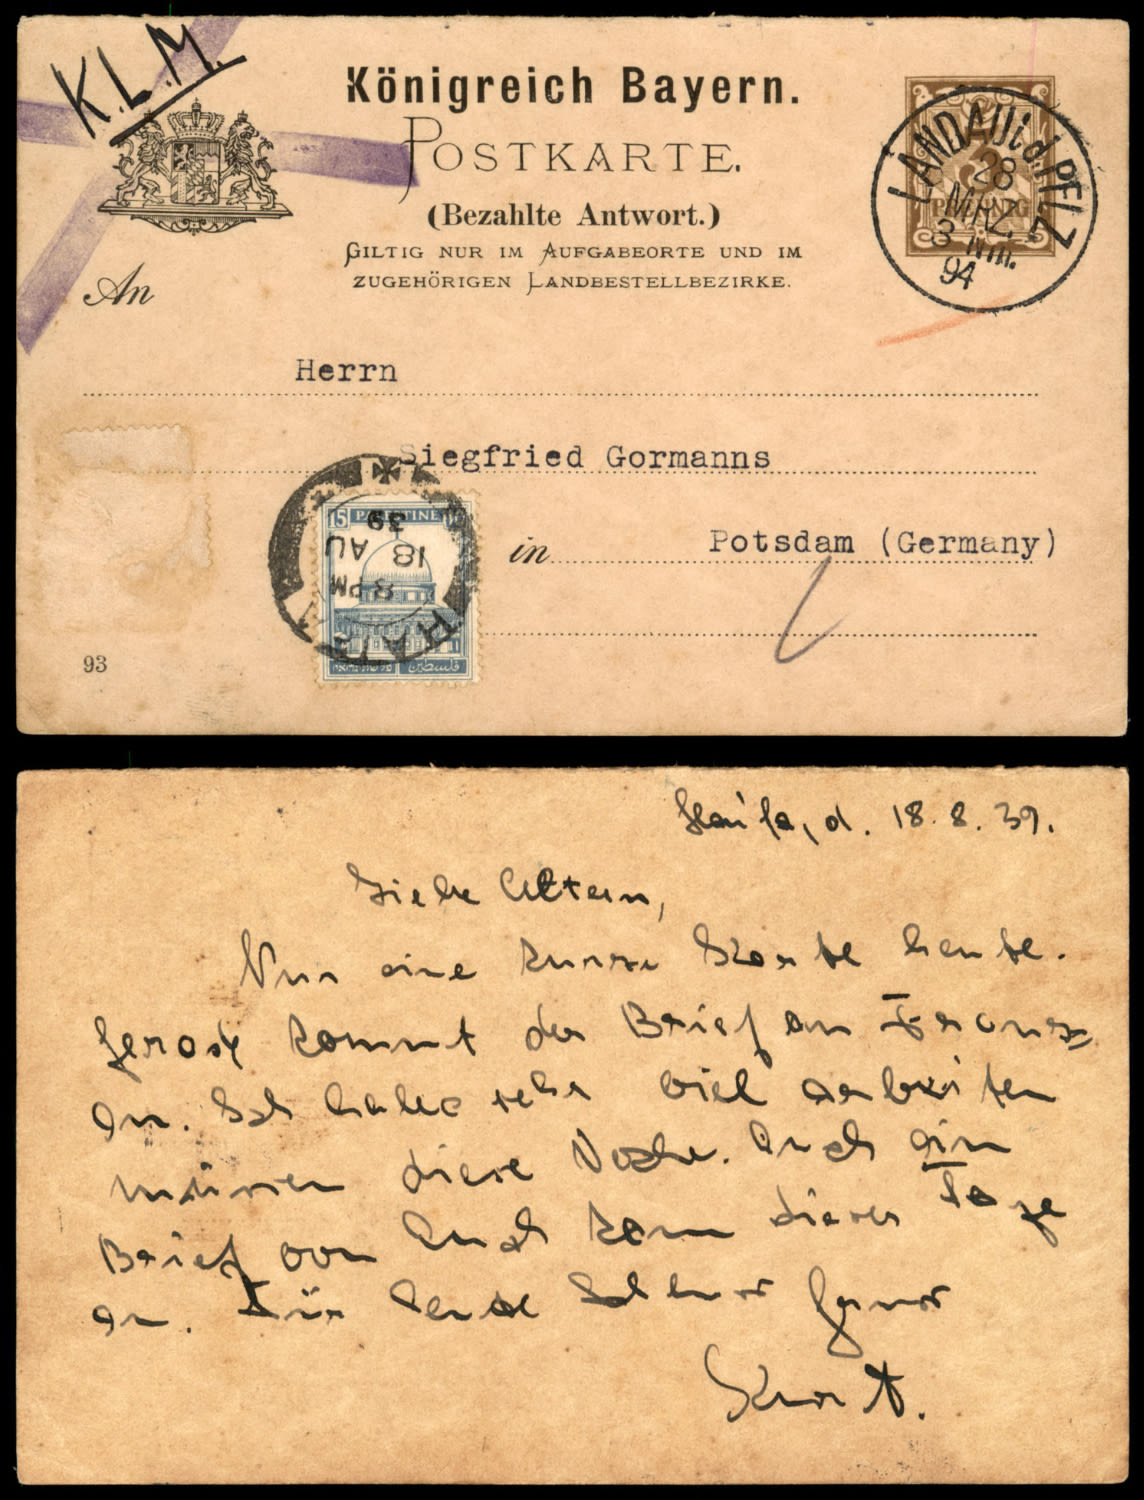 K.L.M.
Königreich Bayern.
POSTKARTE.
(Bezahlte Antwort.)
GILTIG NUR IM AUFGABEORTE UND IM
ZUGEHÖRIGEN LANDBESTELLBEZIRKE.
3
PFENNIG
LANDAU i.d. PFLZ
28
MRZ.
3 Nm.
94
An
Herrn
Siegfried Gormanns
in Potsdam (Germany)
15 PALESTINE
HAIFA
8 PM
18 AU
39
فلسطين
93
Haifa, d. 18. 8. 39.
Liebe Eltern,
Nur eine kurze Karte heute.
Gerade kommt der Brief an Franz
an. Ich habe sehr viel arbeiten
müssen diese Woche. Auch ein
Brief von Euch kam dieser Tage
an. Für heute Schluss
Kurt.